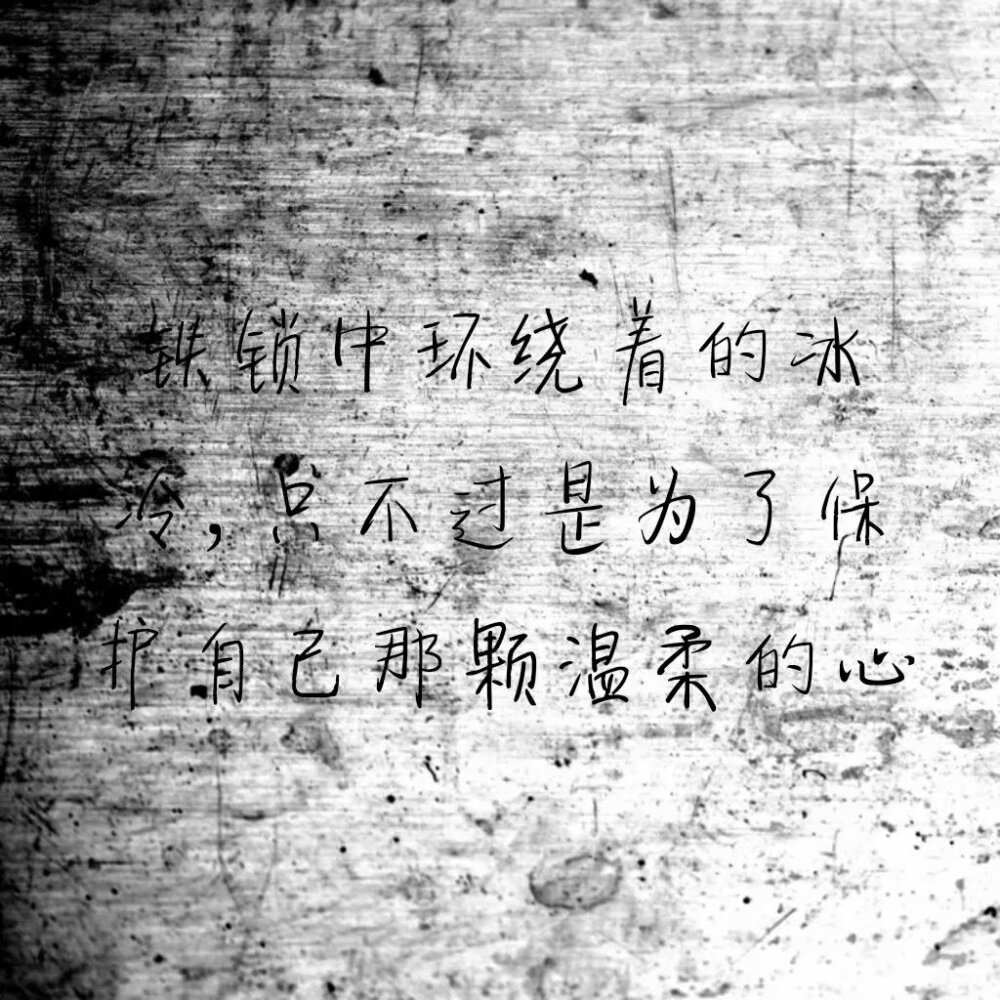 铁锁中环绕着的冰
冷,只不过是为了保
护自己那颗温柔的心